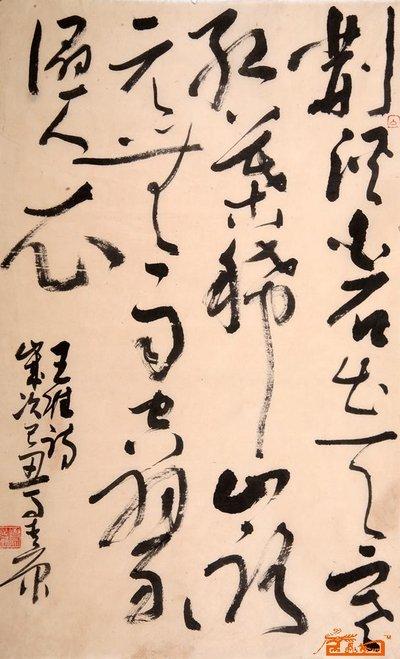 荆溪白石出天寒
紅葉稀山路
元無雨空翠
濕人衣
王維詩
歲次己丑